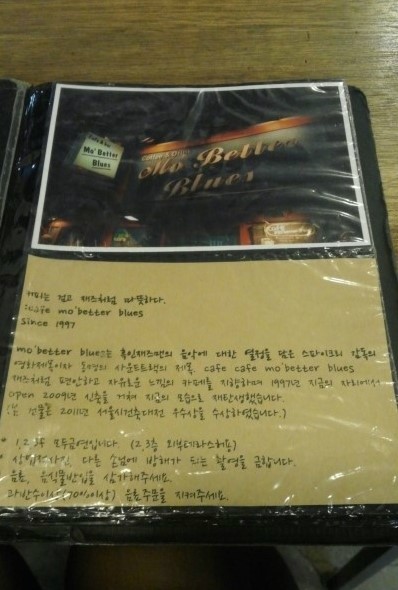 Mo' Better
Blues
Mo' Better
Blues
커피는 검고 재즈처럼 따뜻하다.
:cafe mo'better blues
since 1997
mo'better blues는 흑인재즈맨의 음악에 대한 열정을 담은 스파이크리 감독의
영화제목이자 동명의 사운드트랙의 제목. cafe cafe mo'better blues
재즈처럼 편안하고 자유로운 느낌의 카페를 지향하며 1997년 지금의 자리에서
open 2009년 신축을 거쳐 지금의 모습으로 재탄생했습니다.
건물은 2011년 서울시건축대전 우수상을 수상하였습니다.)
* 1,2,3F 모두금연입니다. (2,3층 외부테라스허용)
* 상업적사진, 다른 손님에 방해가 되는 촬영을 금합니다.
음료, 음식물반입을 삼가해주세요.
과반수이상(70%이상) 음료주문을 지켜주세요.